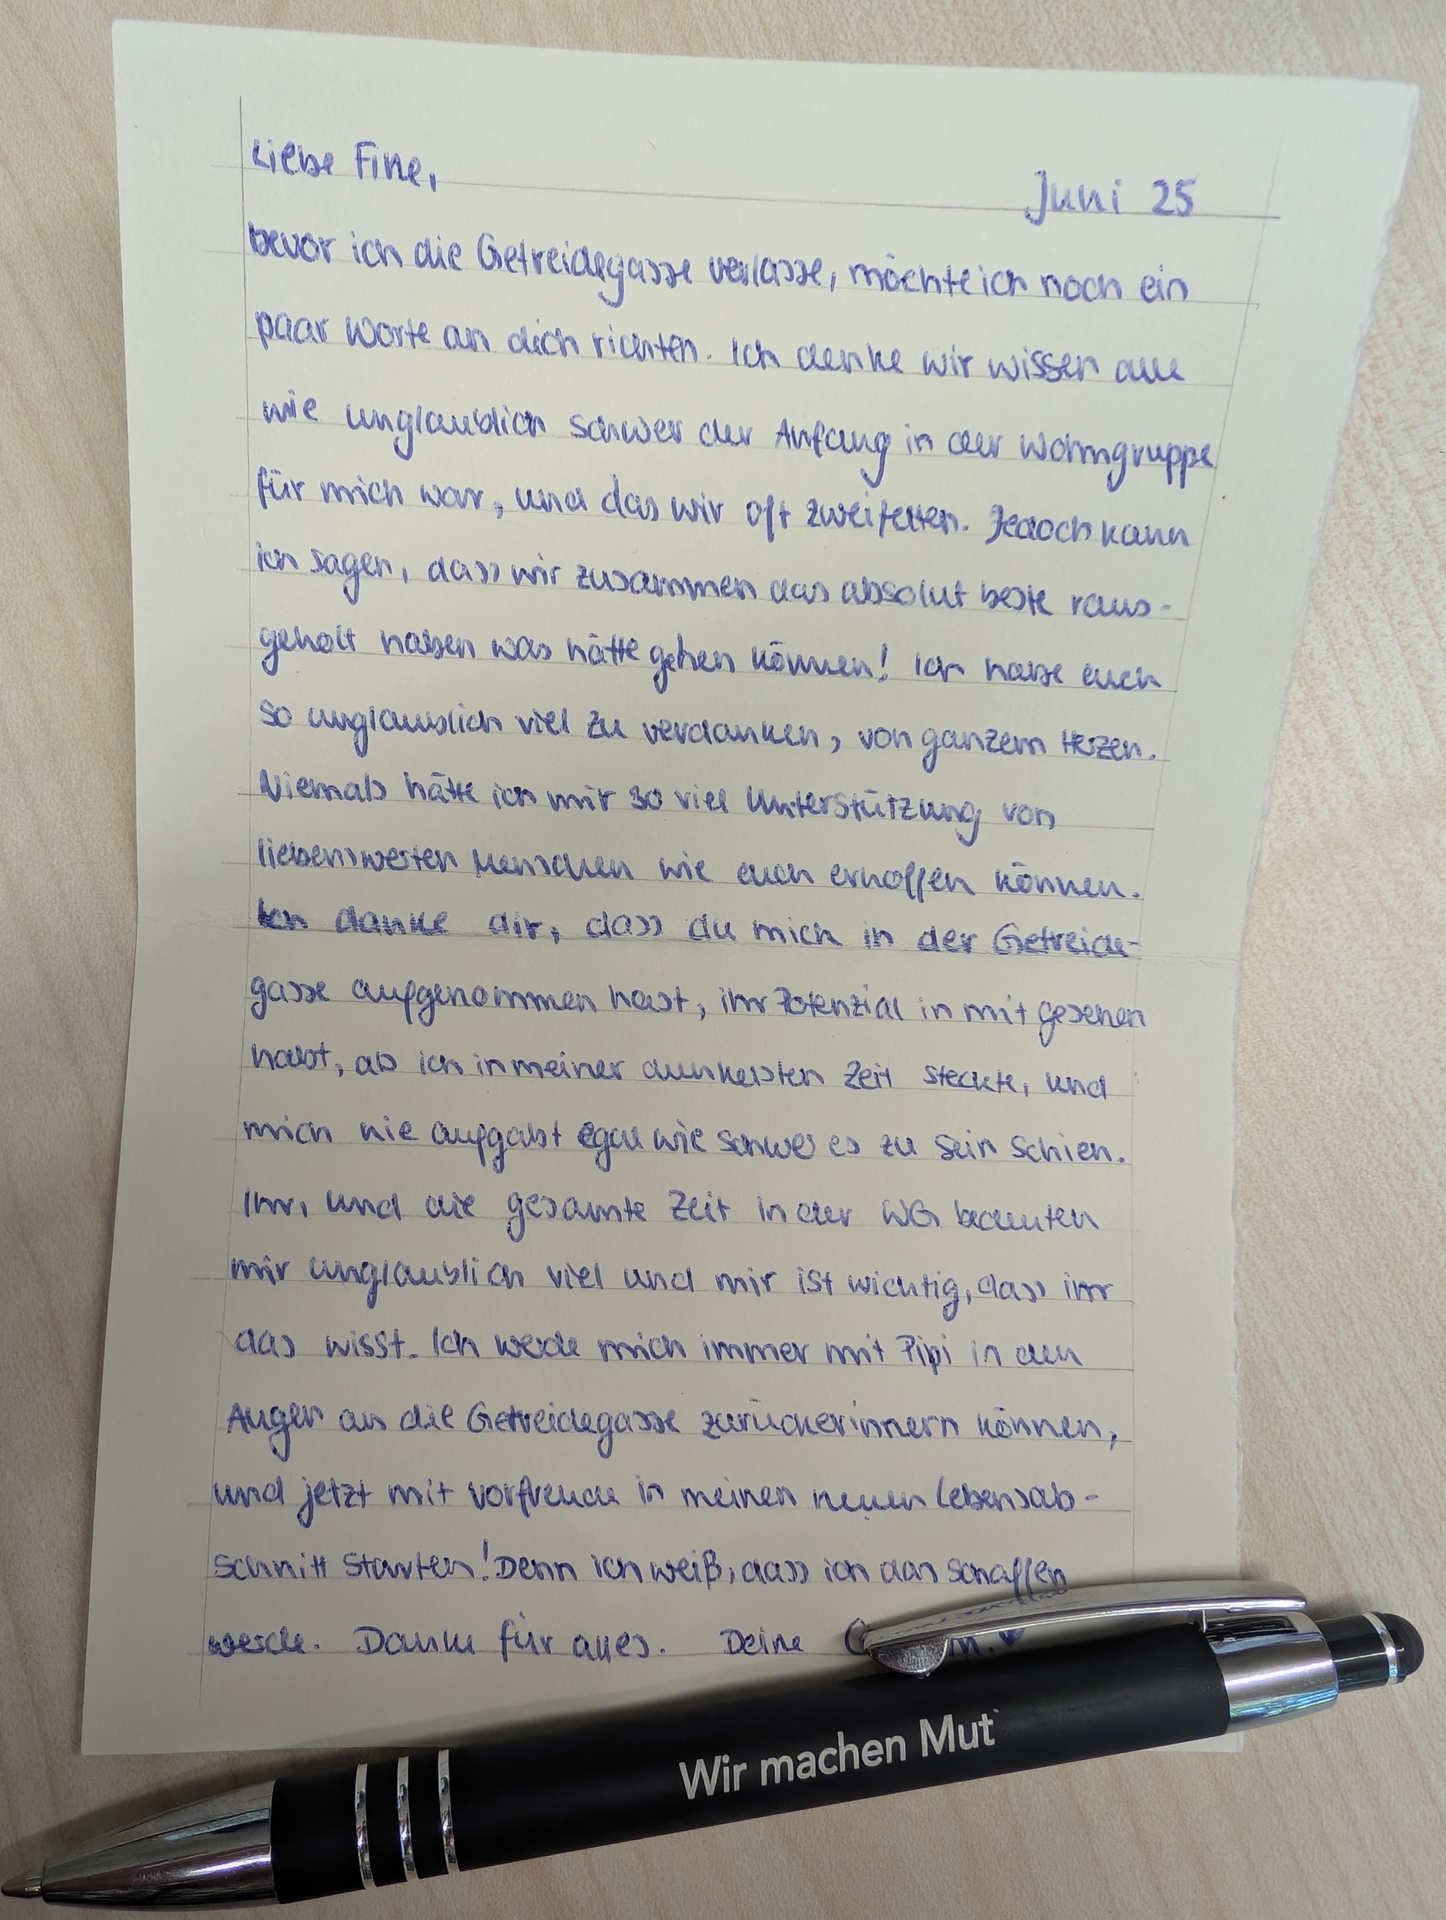 Liebe Fine,
Juni 25
bevor ich die Getreidegasse verlasse, möchte ich noch ein
paar Worte an dich richten. Ich denke wir wissen alle
wie unglaublich schwer der Anfang in der Wohngruppe
für mich war, und das wir oft zweifelten. Jedoch kann
ich sagen, dass wir zusammen das absolut beste raus-
geholt haben was hätte gehen können! Ich habe euch
so unglaublich viel zu verdanken, von ganzem Herzen.
Niemals hätte ich mir so viel Unterstützung von
liebenswerten Menschen wie euch erhoffen können.
Ich danke dir, dass du mich in der Getreide-
gasse aufgenommen hast, ihr Potenzial in mit gesehen
habt, als ich in meiner dunkelsten Zeit steckte, und
mich nie aufgabt egal wie schwer es zu sein schien.
Ihr, und die gesamte Zeit in der WG bedeuten
mir unglaublich viel und mir ist wichtig, dass ihr
das wisst. Ich werde mich immer mit Pipi in den
Augen an die Getreidegasse zurückerinnern können,
und jetzt mit vorfreude in meinen neuen Lebensab-
schnitt starten! Denn ich weiß, dass ich das schaffen
werde. Danke für alles. Deine
Wir machen Mut